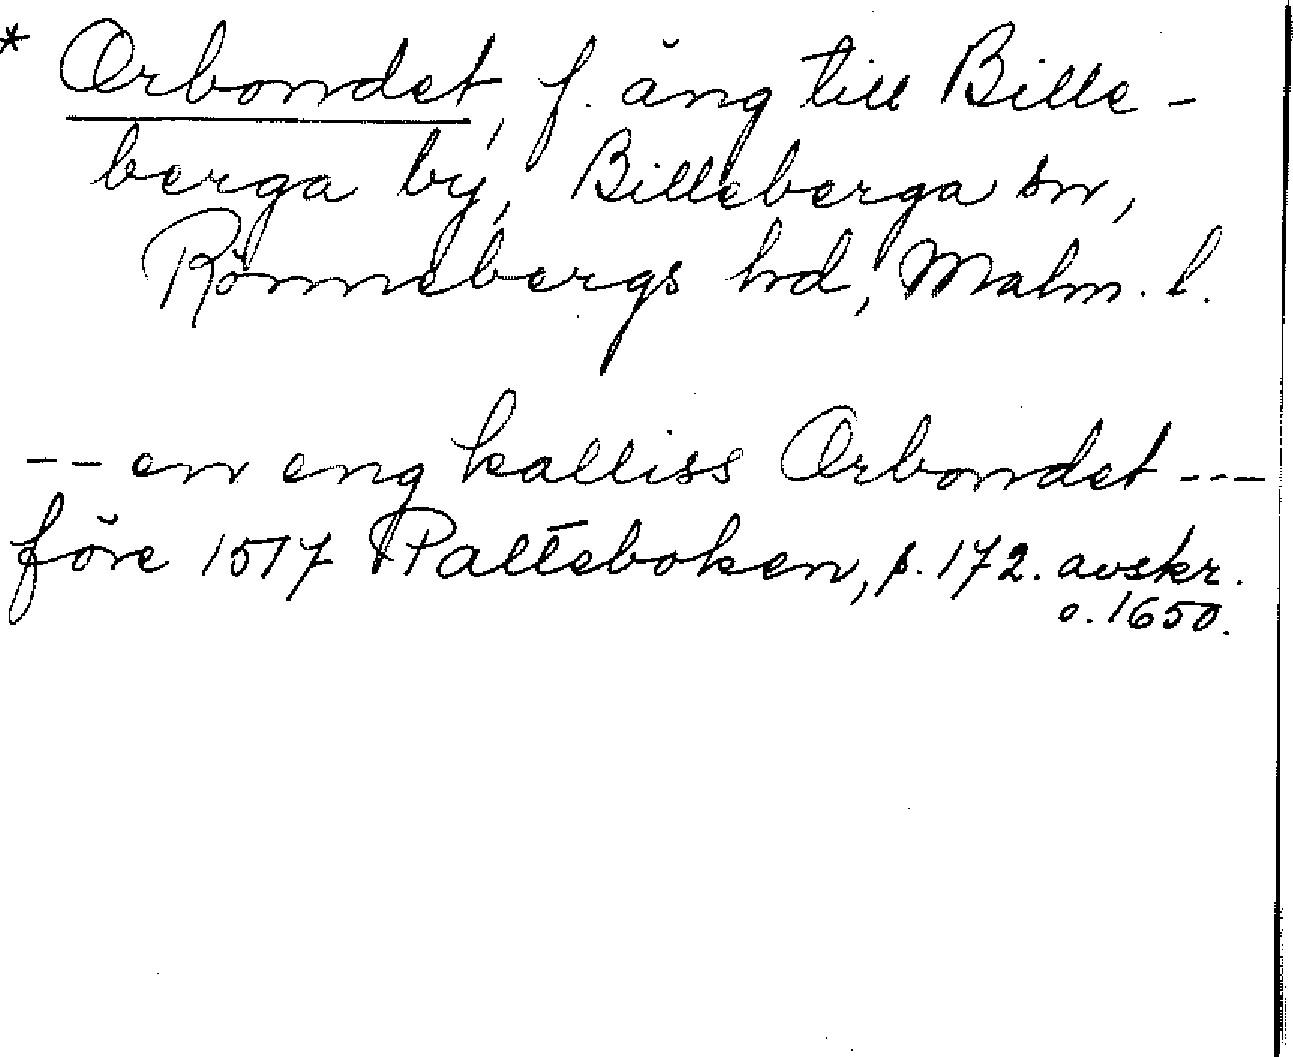 * Orbondet, f. äng till Bille-
berga by, Billeberga sn,
Rönnebergs hd, Malm. l.
-- en eng kalliss Orbondet ---
före 1517 Palteboken, p. 172. avskr.
o. 1650.